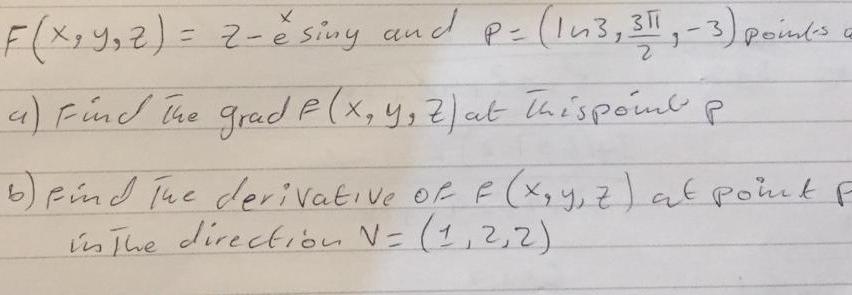 F(x,y,z) = z-e^x siny and P=(ln3, 3π/2, -3) points
a) Find The grad F(x,y,z) at This point P
b) Find The derivative of F(x,y,z) at point P
in The direction V=(1,2,2)